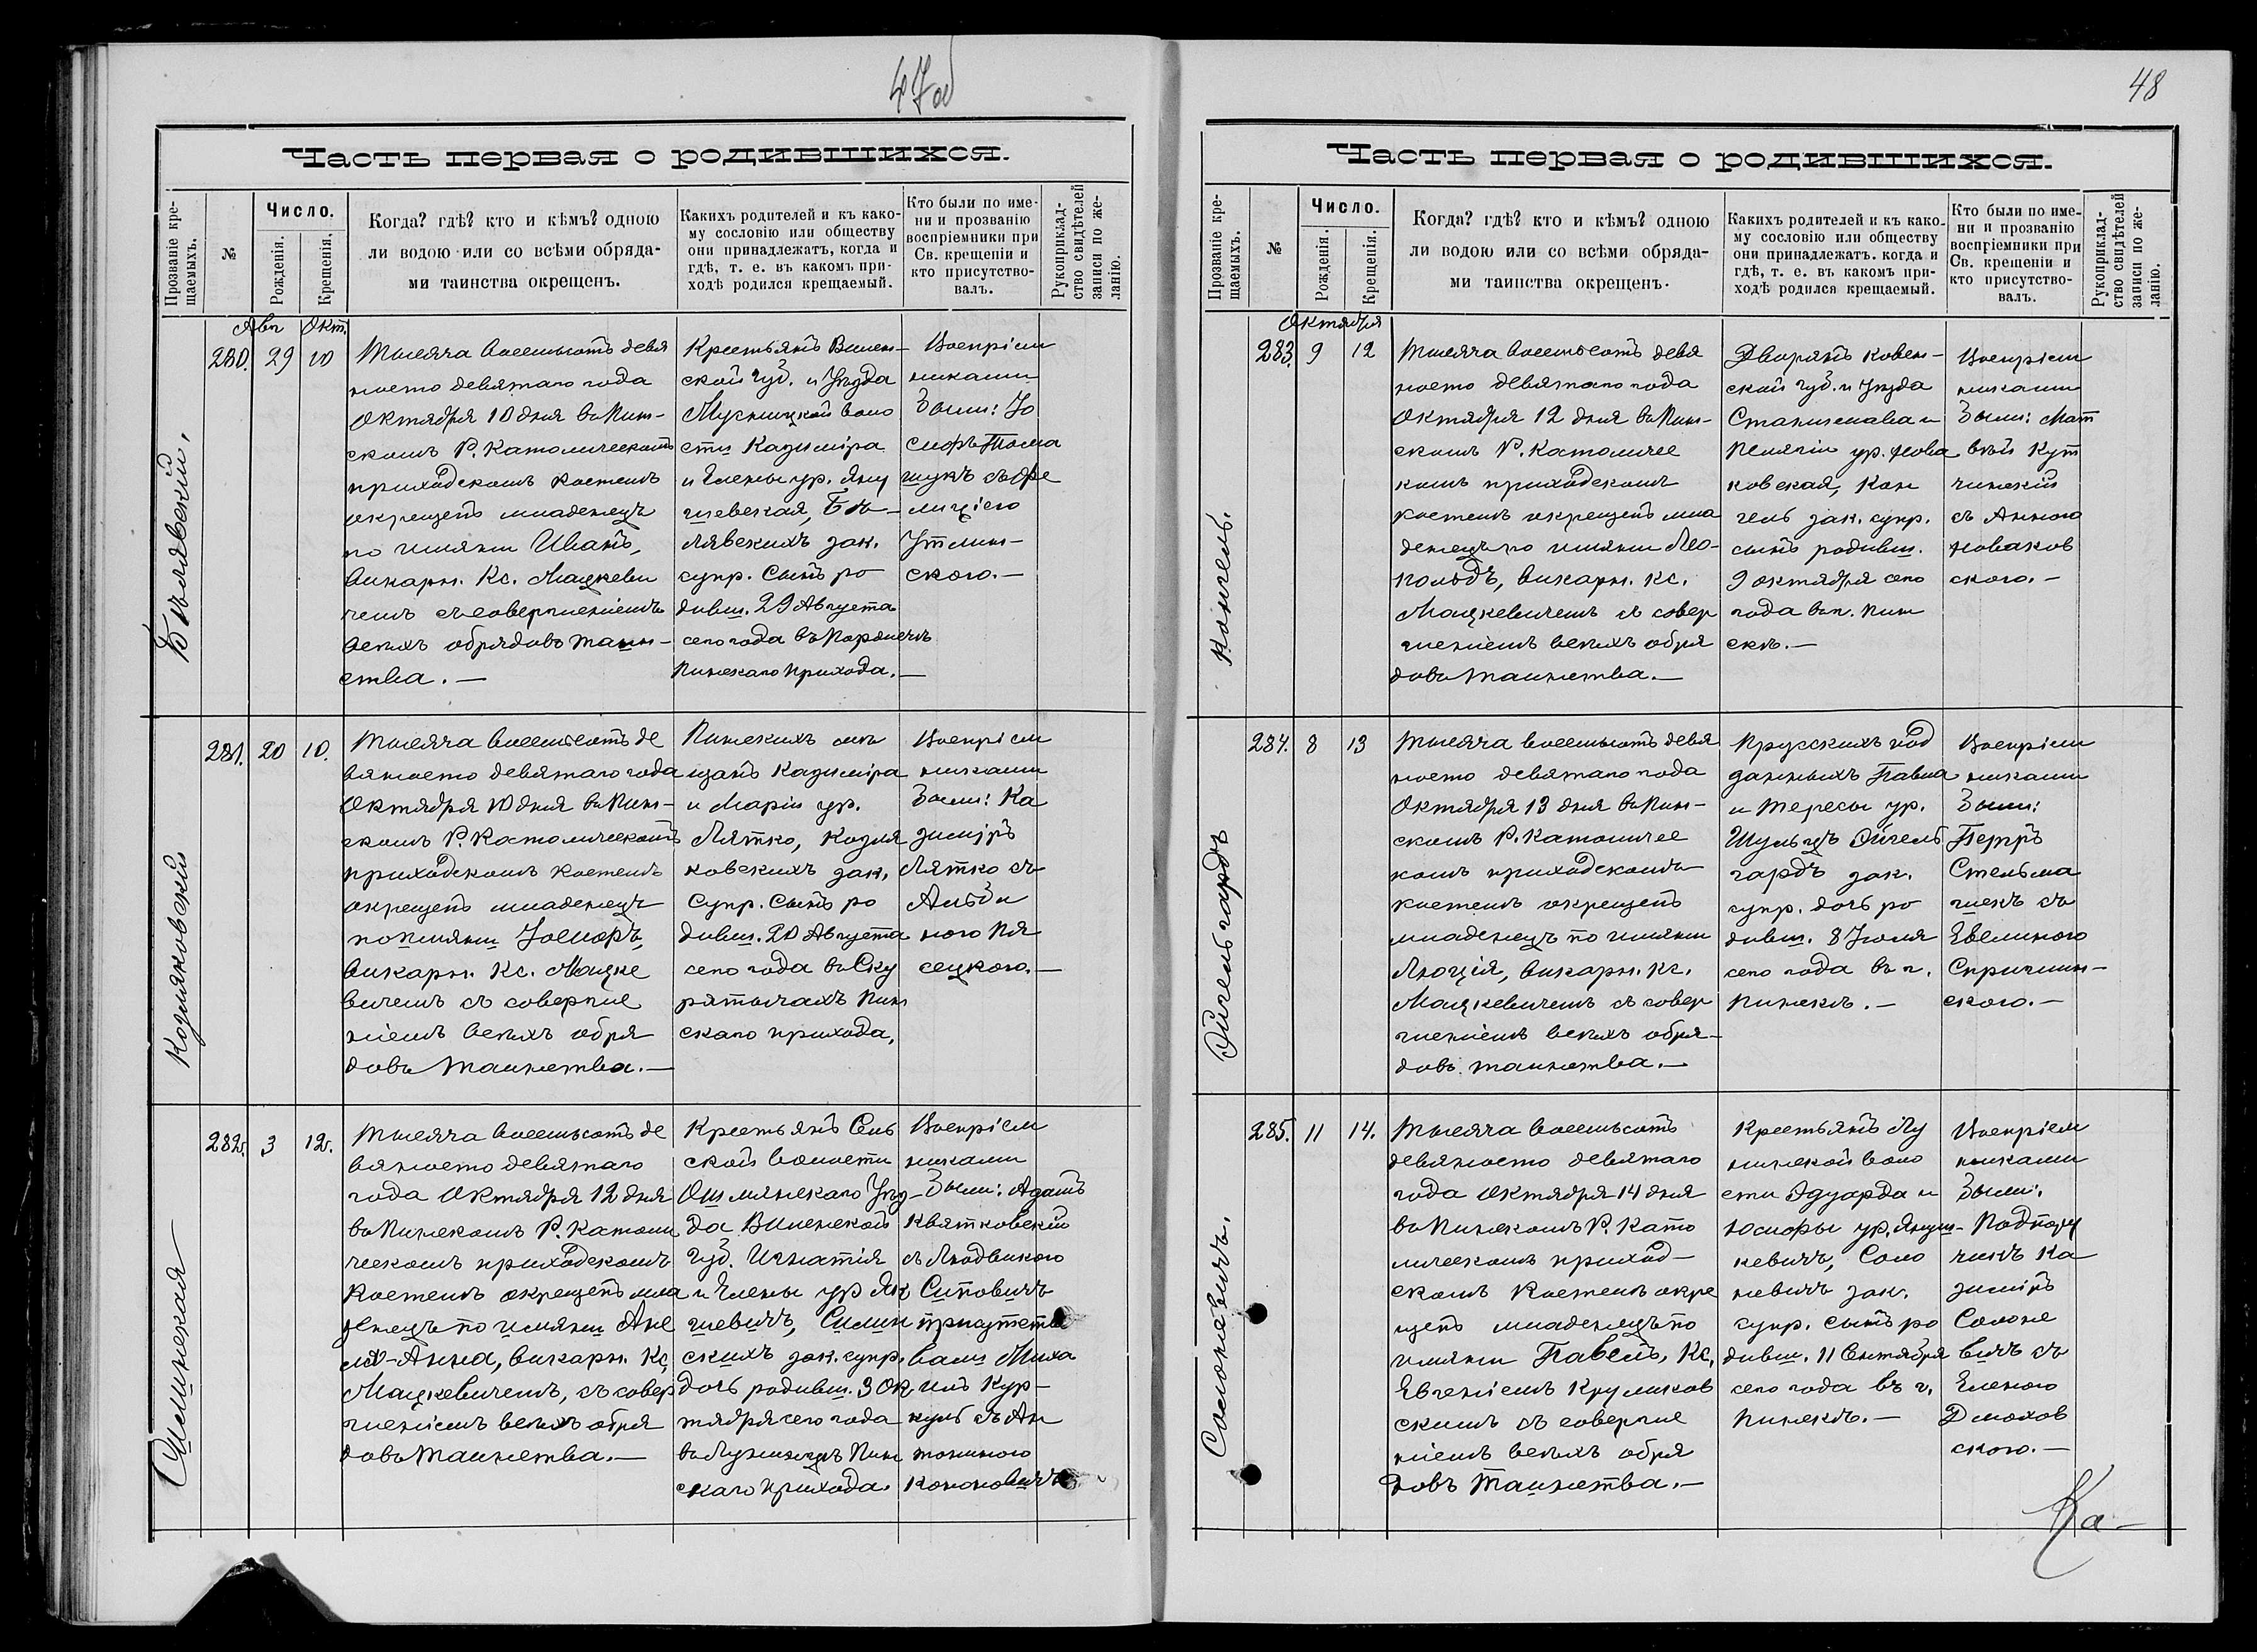 47об
Часть первая о родившихся.
Прозваніе кре-
щаемыхъ.
№
Число.
Рожденія.
Крещенія.
Когда? гдѣ? кто и кѣмъ? одною
ли водою или со всѣми обряда-
ми таинства окрещенъ.
Какихъ родителей и къ како-
му сословію или обществу
они принадлежатъ, когда и
гдѣ, т. е. въ какомъ при-
ходѣ родился крещаемый.
Кто были по име-
ни и прозванію
воспріемники при
Св. крещеніи и
кто присутство-
валъ.
Рукоприклад-
ство свидѣтелей
записи по же-
ланію.
Бѣлявскій.
Авг Окт.
280. 29 10
Тысяча восемьсотъ девя
носто девятаго года
Октября 10 дня въ Пин-
скомъ Р. Католическомъ
приходскомъ костелѣ
окрещенъ младенецъ
по имяни Иванъ,
викарн. Кс. Мацкеви
чемъ съ совершеніемъ
всѣхъ обрядовъ таин-
ства.—
Крестьянъ Вилен-
ской губ. и Уѣзда
Мусницкой воло
сти Казиміра
и Елены ур. Яну
шевская, Бѣ-
лявскихъ зак.
супр. Сынъ ро
дивш. 29 Августа
сего года въ
Пинскаго прихода.—
Воспріем
никами
были: Іо
сифъ Тома
шукъ съ Фе
лиціею
ского.—
Козляковскій
281. 20 10.
Тысяча восемьсотъ де
вяносто девятаго года
Октября 10 дня въ Пин-
скомъ Р. Католическомъ
приходскомъ костелѣ
окрещенъ младенецъ
по имяни
викарн. Кс. Мацке
вичемъ съ соверше
ніемъ всѣхъ обря
довъ таинства.—
Пинскихъ мѣ
щанъ Казиміра
и Маріи ур.
Лятко, Козля
ковскихъ зак.
Супр. Сынъ ро
дивш. 20 Августа
сего года въ Ску
рятычахъ Пин
скаго прихода,
Воспріем
никами
были: Ка
зиміръ
Лятко съ
Альби
ною Пя
сецкою.—
Сицинская
282. 3 12.
Тысяча восемьсотъ де
вяносто девятаго
года Октября 12 дня
въ Пинскомъ Р. Католи
ческомъ приходскомъ
Костелѣ окрещенъ мла
денецъ по имяни
Анна, викарн. Кс,
Мацкевичемъ, съ совер
шеніемъ всѣхъ обря
довъ таинства.—
Крестьянъ
ской волости
Ошмянскаго Уѣз-
да Виленской
губ. Игнатія
и Елены ур Як
шевичъ,
скихъ зак. супр.
дочь родивш. 3 Ок
тября сего года
въ Лунинцѣ Пин
скаго прихода.
Воспріем
никами
были: Адамъ
Квятковскій
съ Людвикою
присутство
валъ Миха
илъ Кур-
куль съ Ан
тониною
Кононовичъ
48
Часть первая о родившихся.
Прозваніе кре-
щаемыхъ.
№
Число.
Рожденія.
Крещенія.
Когда? гдѣ? кто и кѣмъ? одною
ли водою или со всѣми обряда-
ми таинства окрещенъ.
Какихъ родителей и къ како-
му сословію или обществу
они принадлежатъ. когда и
гдѣ, т. е. въ какомъ при-
ходѣ родился крещаемый.
Кто были по име-
ни и прозванію
воспріемники при
Св. крещеніи и
кто присутство-
валъ.
Рукоприклад-
ство свидѣтелей
записи по же-
ланію.
Контель.
Октября
283. 9 12
Тысяча восемьсотъ девя
носто девятаго года
Октября 12 дня въ Пин-
скомъ Р. Католичес
комъ приходскомъ
костелѣ окрещенъ мла
денецъ по имяни Лео-
польдъ, викарн. кс.
Мацкевичемъ съ совер
шеніемъ всѣхъ обря
довъ таинства.—
Дворянъ Ковен-
ской губ. и Уѣзда
Станислава и
Пелягіи ур. Нова
ковская, Кон
тель зак. супр.
сынъ родивш.
9 октября сего
года въ г. Пин
скѣ.—
Воспріем
никами
были: Мат
вѣй Кут
чинскій
съ Анною
Новаков
скою.—
Эйгельгардъ
284. 8 13
Тысяча восемьсотъ девя
носто девятаго года
Октября 13 дня въ Пин-
скомъ Р. Католичес
комъ приходскомъ
костелѣ окрещенъ
младенецъ по имяни
Люція, викарн. кс.
Мацкевичемъ съ совер
шеніемъ всѣхъ обря-
довъ таинства.—
Прусскихъ под
данныхъ Павла
и Тересы ур.
Шульцъ Эйгель
гардъ зак.
супр. дочь ро
дивш. 8 Іюля
сего года въ г.
Пинскѣ.—
Воспріем
никами
были:
Петръ
Стельма
шекъ съ
Евелиною
скою.—
Солоневичъ.
285. 11 14.
Тысяча восемьсотъ
девяносто девятаго
года Октября 14 дня
въ Пинскомъ Р. Като
лическомъ приход-
скомъ Костелѣ окре
щенъ младенецъ по
имяни Павелъ, Кс,
Евгеніемъ Круликов
скимъ съ соверше
ніемъ всѣхъ обря
довъ Таинства.—
Крестьянъ Лу
нинской воло
сти Эдуарда и
Юсифы ур. Януш-
кевичъ, Соло
невичъ зак.
супр. сынъ ро
дивш. 11 Сентября
сего года въ г,
Пинскѣ.—
Воспріем
никами
были:
Подпору
чикъ Ка
зиміръ
Солоне
вичъ съ
Еленою
Дмохов
скою.—
Ка-